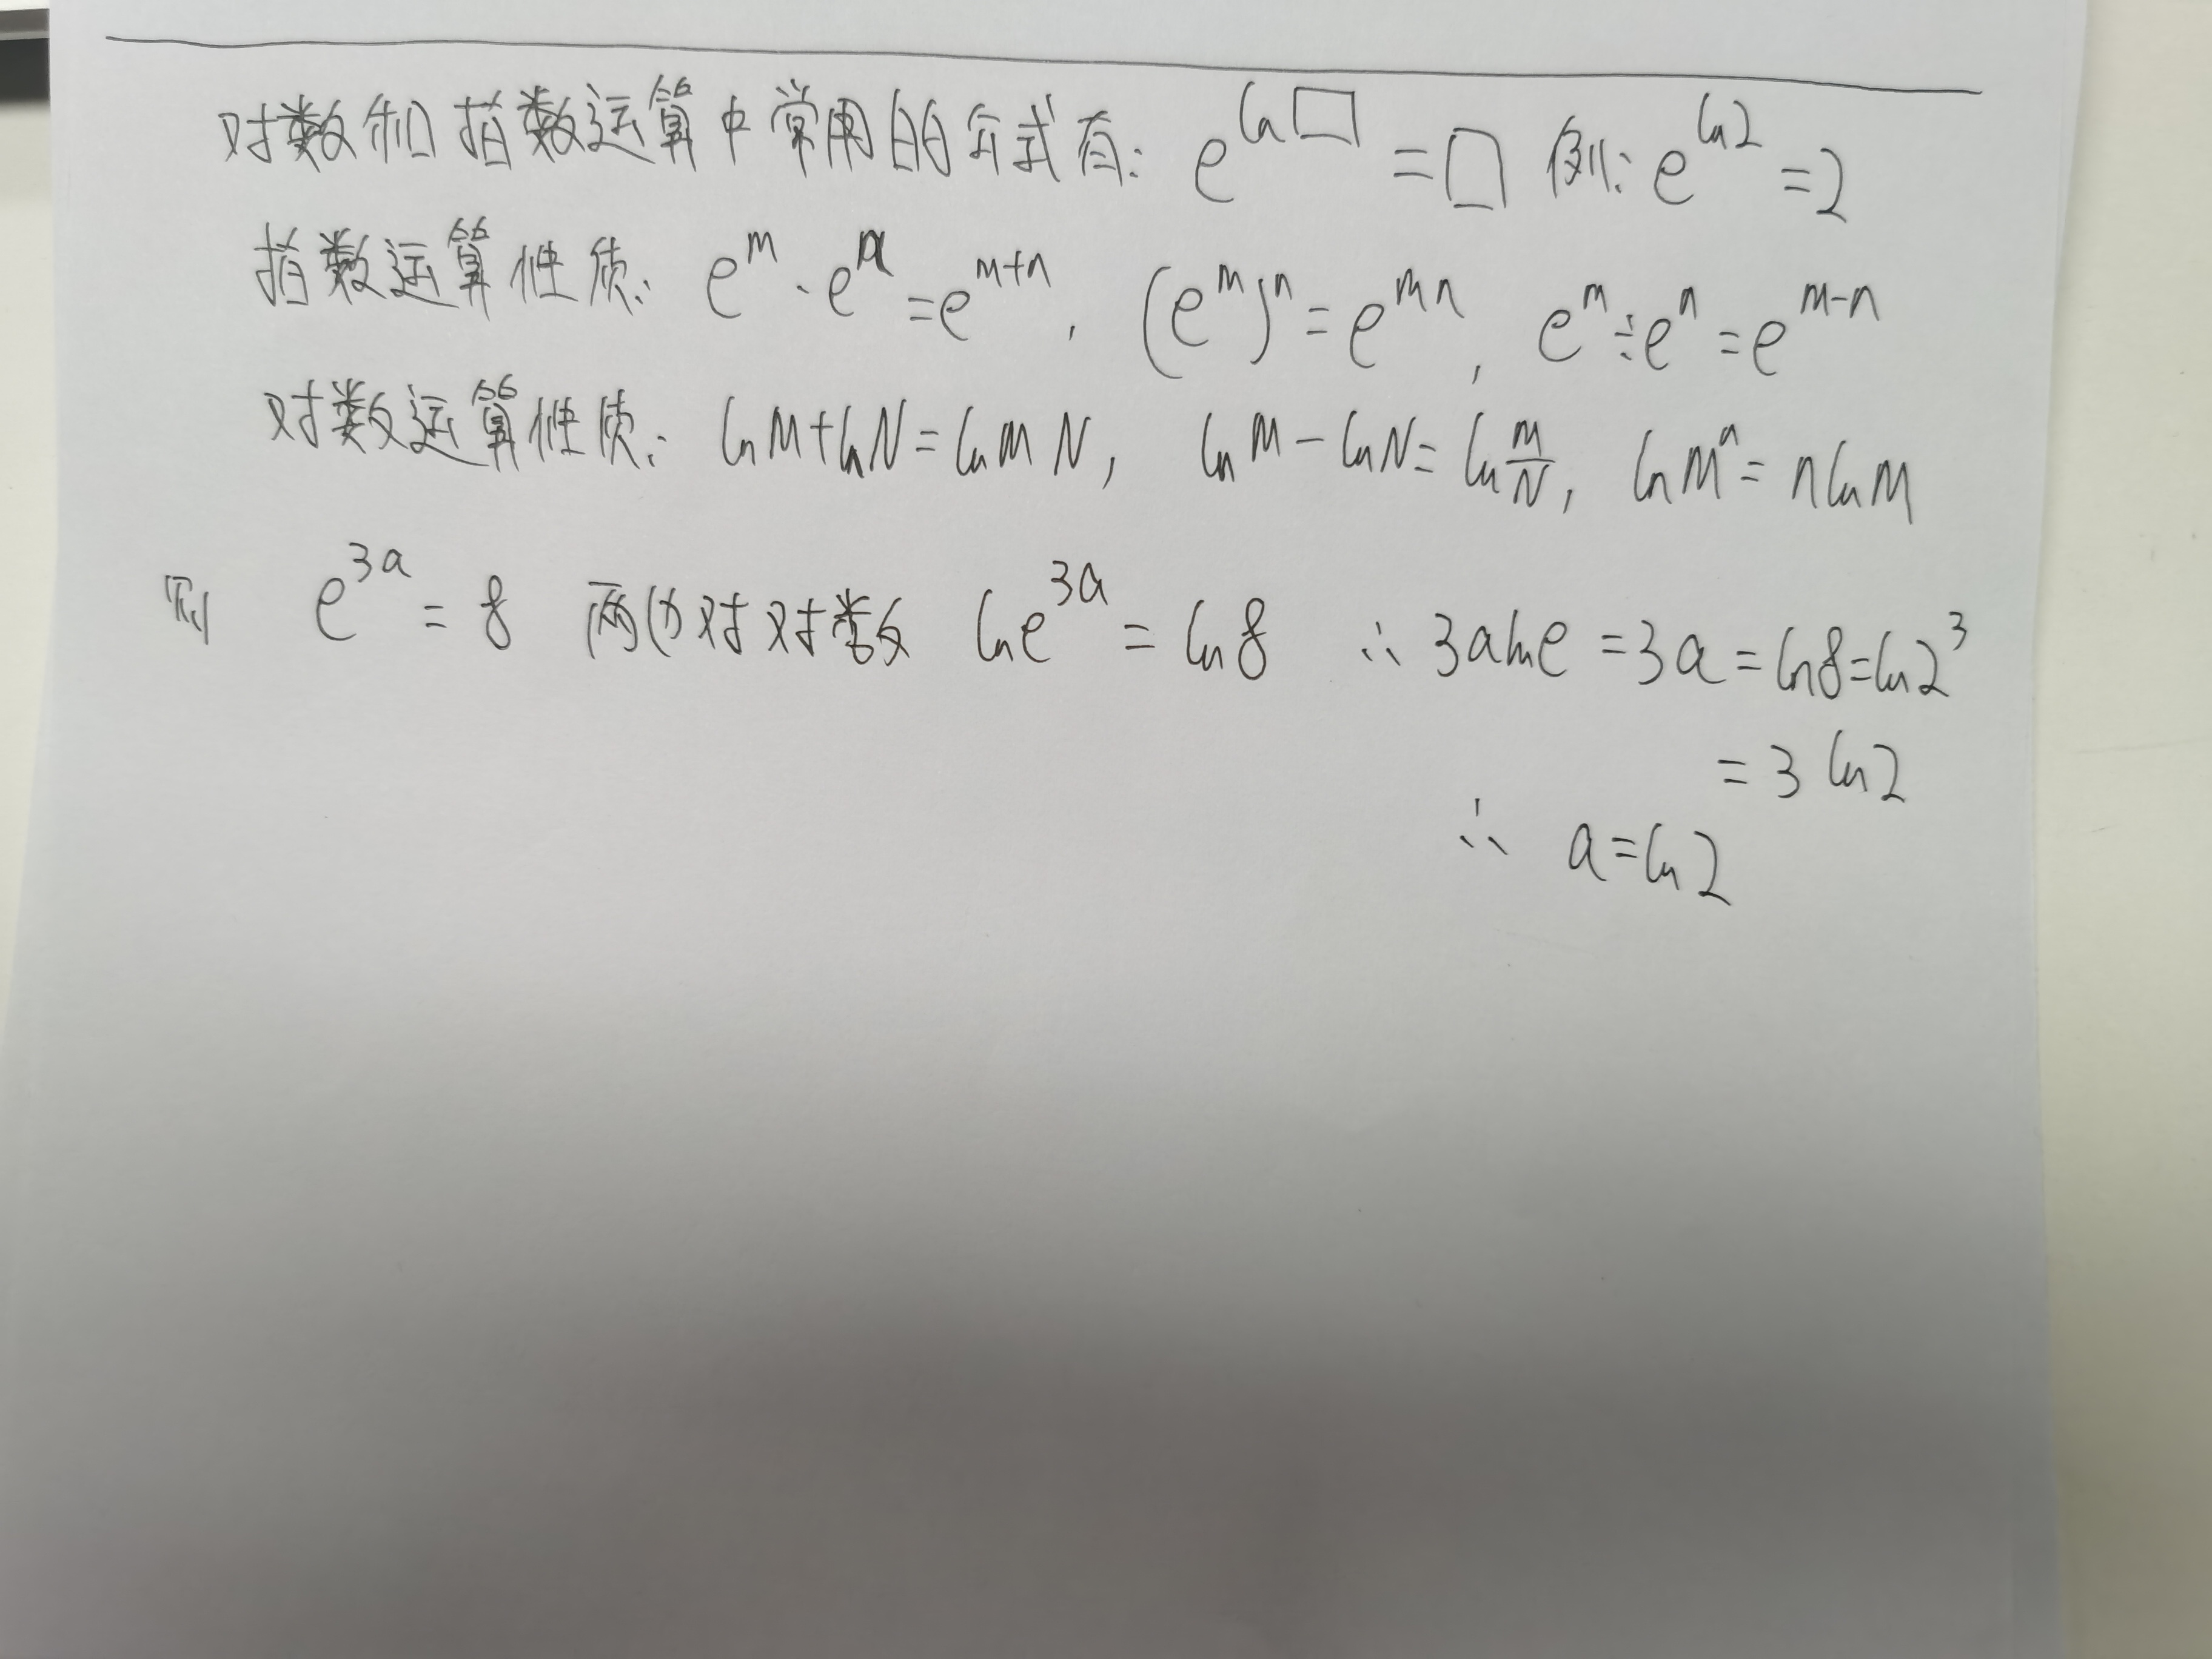 对数和指数运算中常用的公式有: e^{ln□} = □ 例: e^{ln2} = 2
指数运算性质: e^m · e^n = e^{m+n}, (e^m)^n = e^{mn}, e^m ÷ e^n = e^{m-n}
对数运算性质: lnM+lnN=lnMN, lnM-lnN=ln\frac{M}{N}, lnM^n = nlnM
则 e^{3a} = 8 两边对对数 lne^{3a} = ln8 ∴ 3alne = 3a = ln8=ln2^3
= 3 ln2
∴ a=ln2